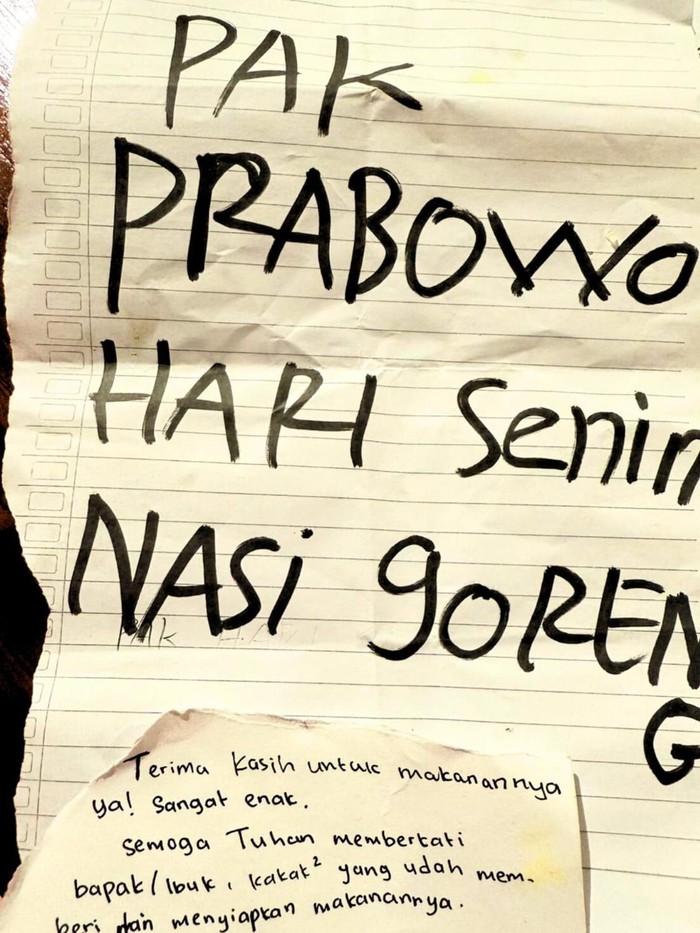 PAK
PRABOWO
HARI Senin
NASi gOREN
G
PAK HARI
Terima Kasih untuk makanannya
ya! Sangat enak.
semoga Tuhan memberkati
bapak/Ibuk, kakak² yang udah mem-
beri dan menyiapkan makanannya.